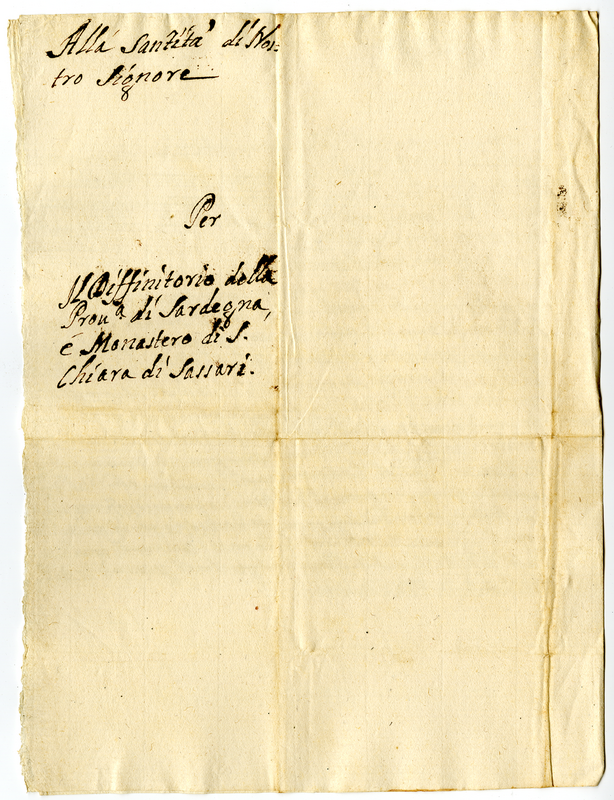 Alla Santita' di Nos-
tro Signore
Per
Il Diffinitorio della
Prou.ª di Sardegna,
é Monastero di S.
Chiara di Sassari.